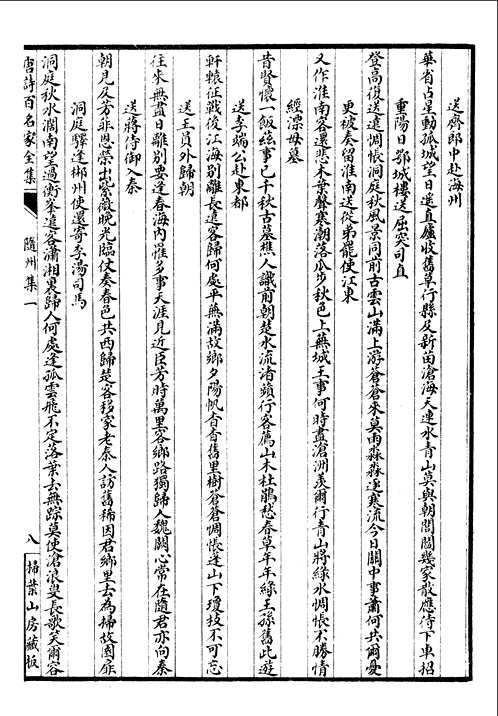 送齊郎中赴海州
華省占星動孤城望日遙直廬收舊草行縣及新苗滄海天連水青山莫與朝閭閻幾家散應待下車招
重陽日鄂城樓送屈突司直
登高復送遠惆悵洞庭秋風景同前古雲山滿上游蒼蒼來莫雨淼淼逐寒流今日關中事蕭何共爾憂
更被奏留淮南送從弟罷使江東
又作淮南客還悲木葉聲寒潮落瓜步秋色上蕪城王事何時盡滄洲羡爾行青山將綠水惆悵不勝情
經漂母墓
昔賢懷一飯茲事已千秋古墓樵人識前朝楚水流渚蘋行客薦山木杜鵑愁春草年年綠王孫舊此遊
送李端公赴東都
軒轅征戰後江海別離長遠客歸何處平蕪滿故鄉夕陽帆杳杳舊里樹蒼蒼惆悵蓬山下瓊枝不可忘
送王員外歸朝
往來無盡目離別要逢春海內罹多事天涯見近臣芳時萬里客鄉路獨歸人魏闕心常在隨君亦向秦
送蔣侍御入秦
朝見及芳菲恩榮出紫微晚光臨仗奏春色共西歸楚客移家老秦人訪舊稀因君鄉里去為掃故園扉
洞庭驛逢郴州使還寄李湯司馬
洞庭秋水闊南望過衡峯遠客瀟湘裏歸人何處逢孤雲飛不定落葉去無踪莫使滄浪叟長歌笑爾容
唐詩百名家全集
隨州集一
八
掃葉山房藏板